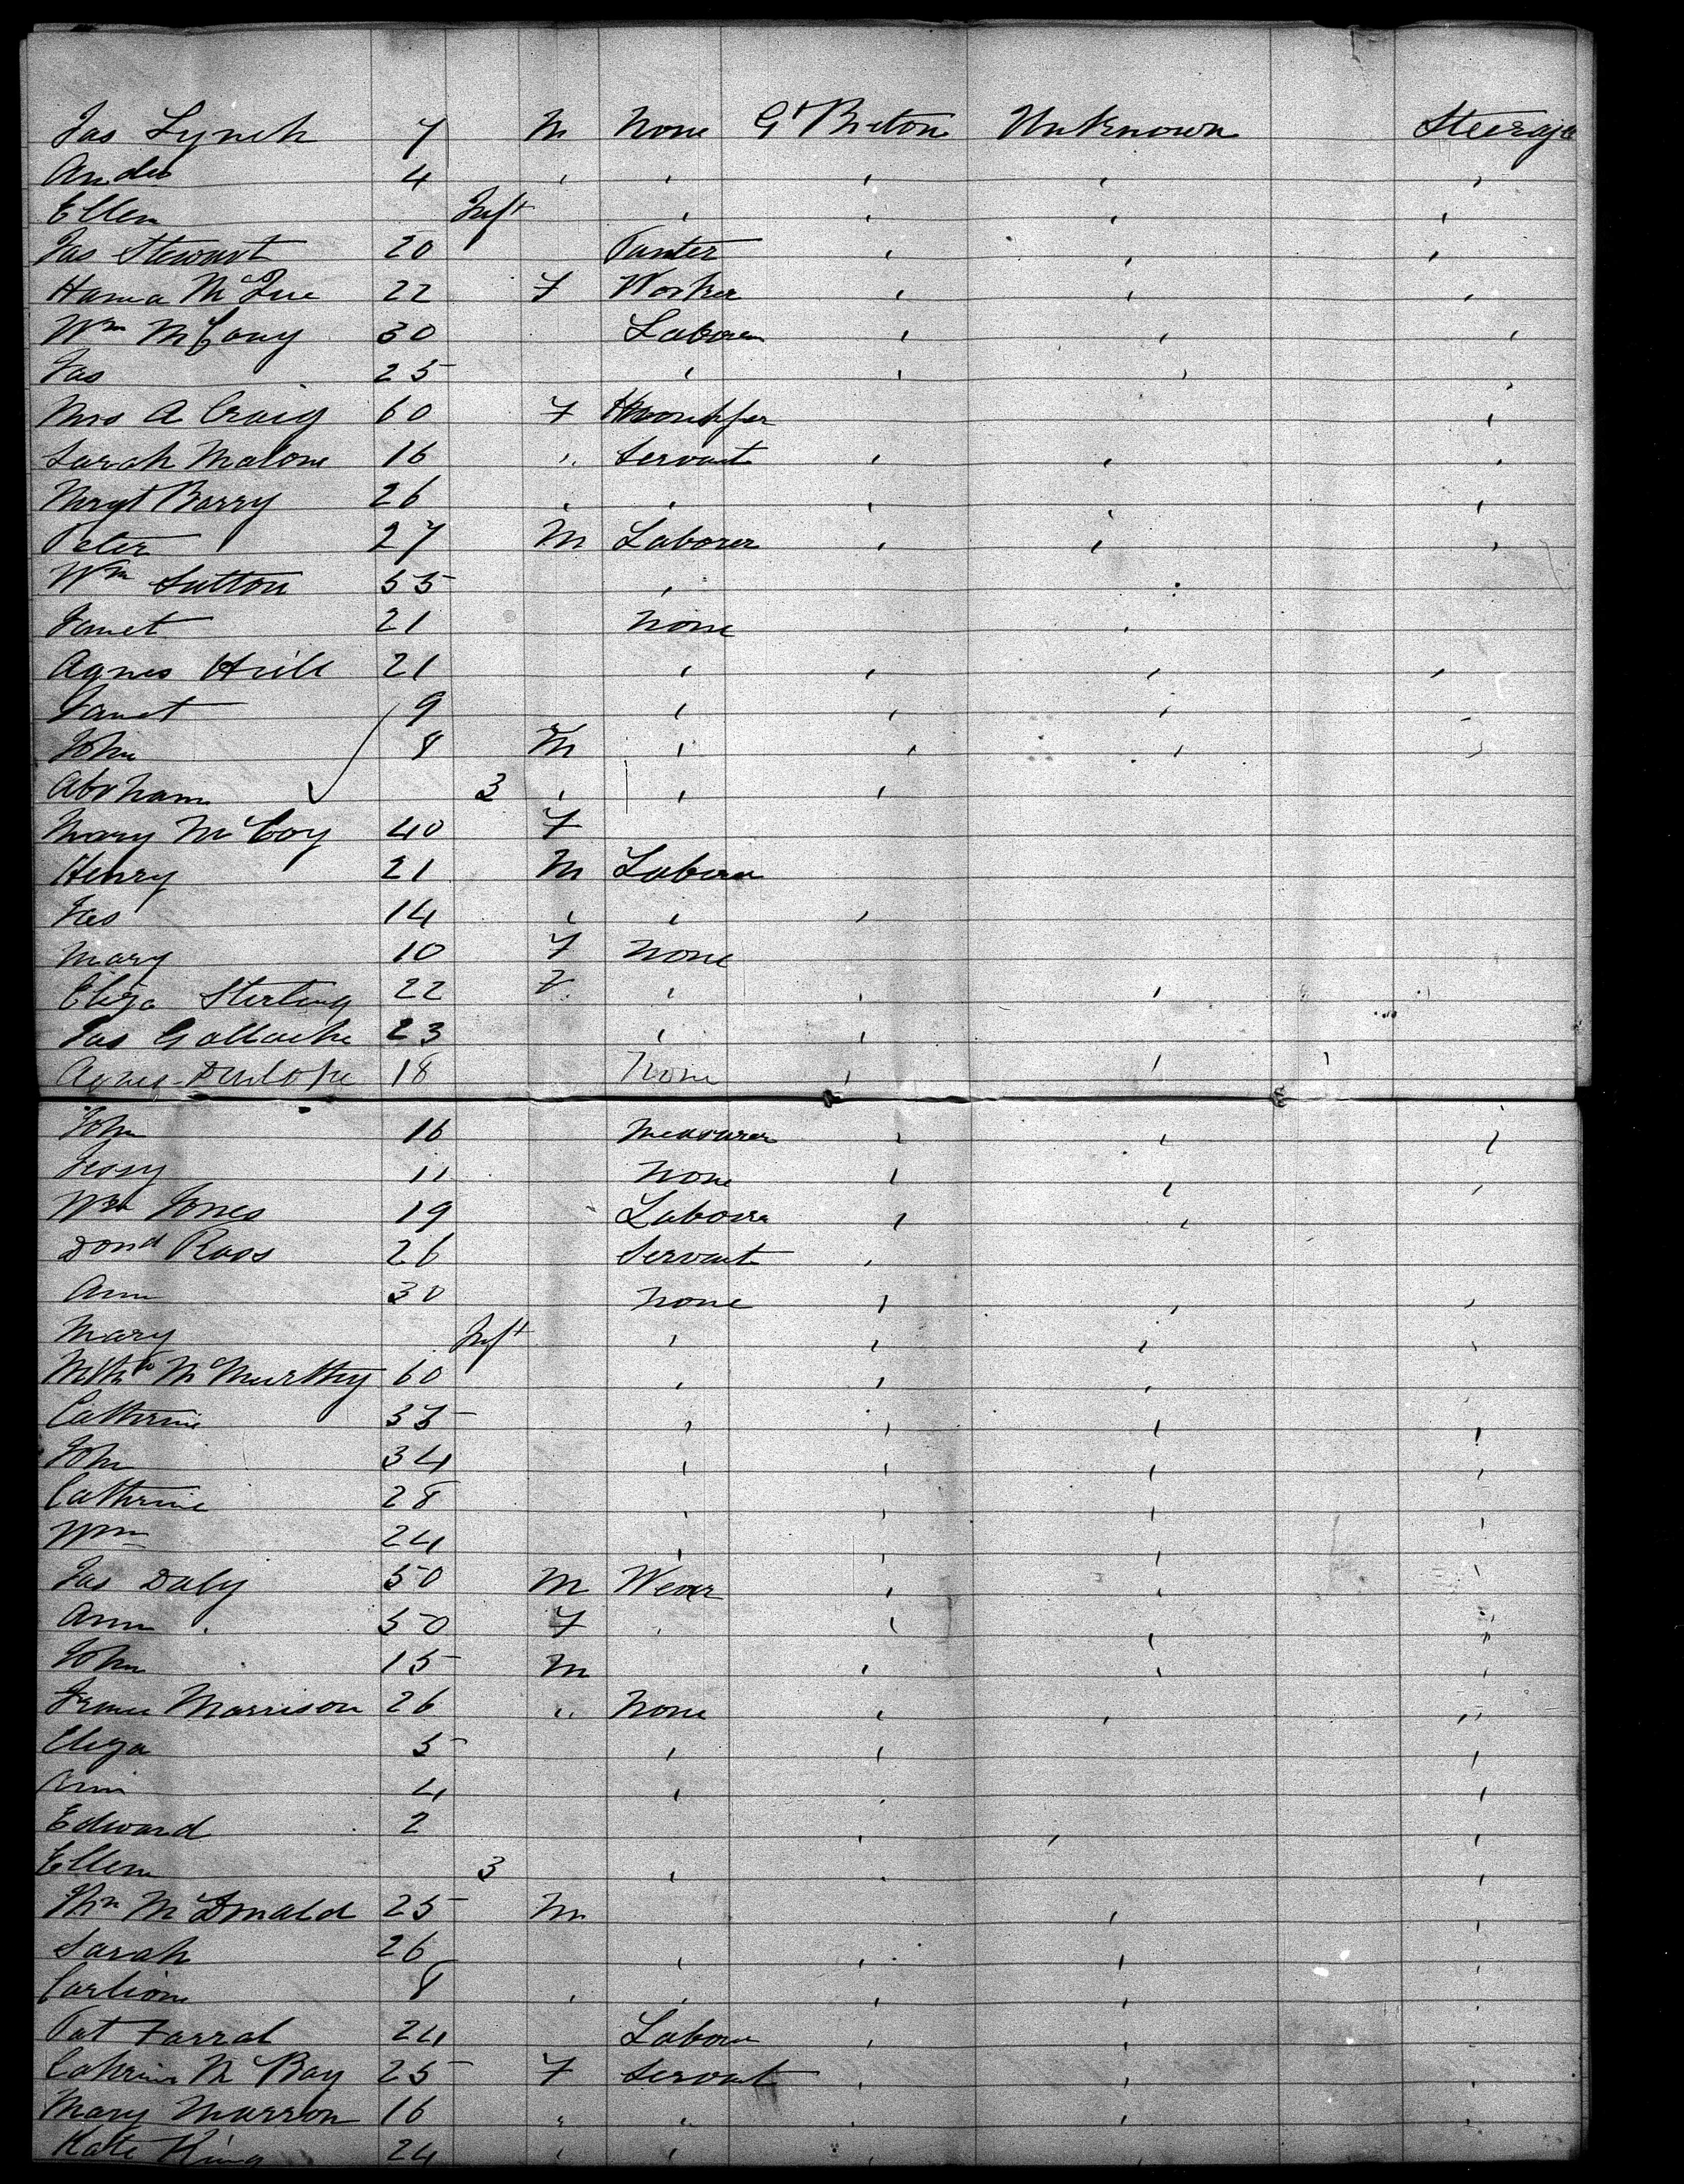 Jas Lynch 7 M None Gt Breton Unknown Steerage
Andw 4 , , , , ,
Ellen Inft , , , ,
Jas Stewart 20 , , ,
22 F Worker , , ,
Wm McCouy 30 Laborer , , ,
Jas 25 , , , ,
Mrs A Craig 60 F ,
Sarah Malone 16 " Servant , , ,
Mrgt Barry 26 , , , , ,
Peter 27 M Laborer , , ,
Wm Sutton 55 ,
Janet 21 None ,
Agnes Hill 21 , , , ,
Janet 9 , , , ,
John 8 M , , , ,
Abraham 3 , , ,
Mary McCoy 40 F
Henry 21 M Laborer
Jas 14 , , ,
Mary 10 F None
Eliza Sterling 22 F , , ,
Jas Gallache 23 , ,
Agnes Dunlope 18 None , , ,
John 16 Measurer , , ,
Jessy 11 None , , ,
Wm Jones 19 Laborer , ,
Dond Ross 26 Servant ,
Ann 30 None , , ,
Mary Inft , , , ,
McMurthy 60 , , ,
Catherine 35 , , , ,
John 34 , , , ,
Cathrine 28 , , , ,
Wm 24 , , ,
Jas Daly 50 M Wevr , , ,
Ann 50 F , , , ,
John 15 M , , ,
Morrison 26 " None , , "
Eliza 5 , , ,
Ann 4 , , ,
Edward 2 , , ,
Ellen 3 , , ,
McDonald 25 M , ,
Sarah 26 , , , ,
8 , , , , ,
Pat Farral 24 Labour , , ,
Cahrine McBay 25 F Servant , , ,
Mary Marron 16 " " , , ,
Kate King 24 , , , ,